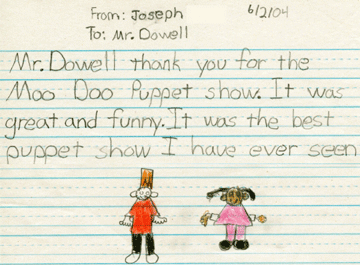 From: Joseph 6/2/04
To: Mr. Dowell
Mr. Dowell thank you for the
Moo Doo Puppet show. It was
great and funny. It was the best
puppet show I have ever seen